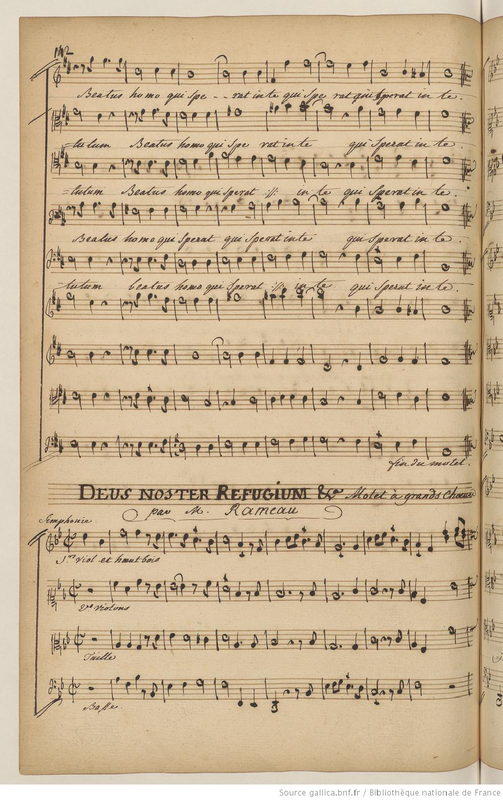 142
Beatus homo qui spe -- rat in te qui spe rat qui sperat in te.
=tutum Beatus homo qui spe rat in te qui sperat in te
=tutum Beatus homo qui sperat :// in te qui sperat in te
Beatus homo qui sperat qui sperat in te qui sperat in te.
=tutum beatus homo qui sperat :// in te qui sperat in te.
fin du motet.
DEUS NOSTER REFUGIUM &c Motet à grands Chœurs
par M. Rameau
Simphonie
1er viol et hautbois
2es violons
Taille
Basse
Source gallica.bnf.fr / Bibliothèque nationale de France